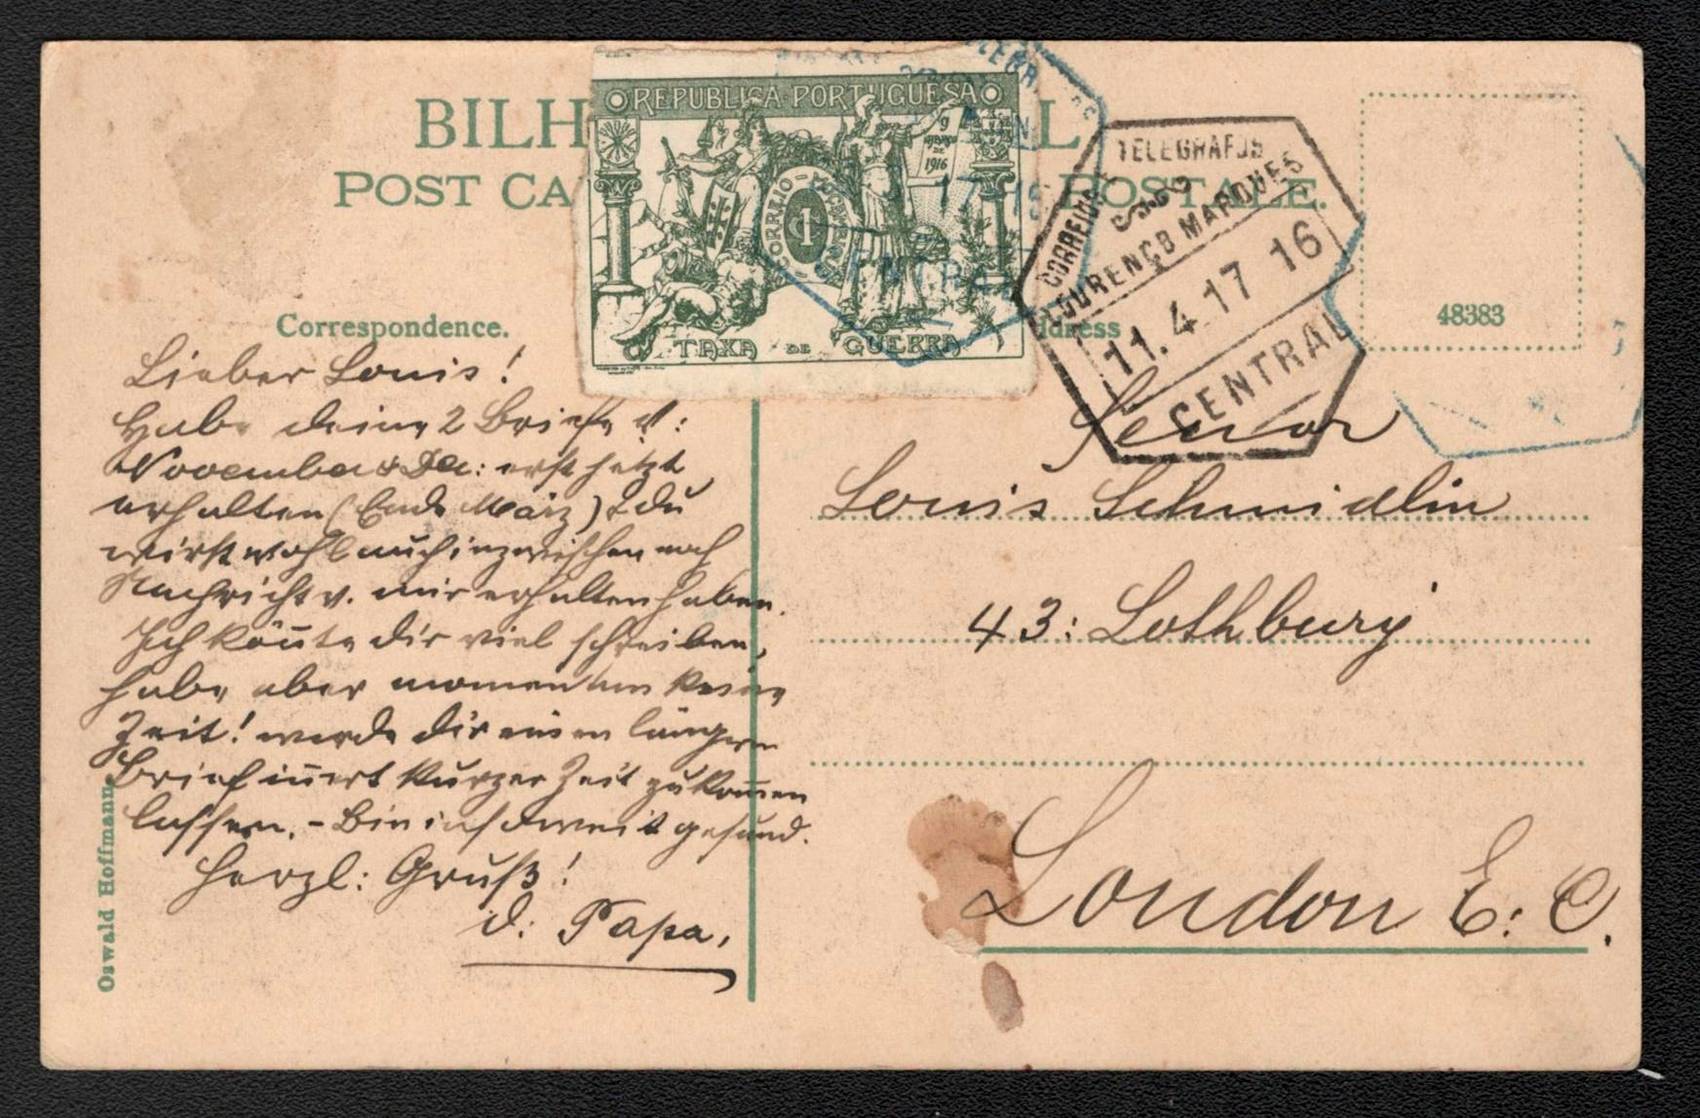 BILH AL
POST CA POSTALE.
REPUBLICA PORTUGUESA
9
DE
1916
CORREIO
1
TAXA DE GUERRA
CENTRAL
TELEGRAFOS
CORREIOS E
LOURENÇO MARQUES
11.4.17 16
CENTRAL
48383
Correspondence.
ddress
Lieber Louis!
Habe deine 2 Briefe v:
November & Dez: erst jetzt
erhalten (Ende März) & du
wirst wohl auch inzwischen noch
Nachricht v. mir erhalten haben.
Ich kön̄te dir viel schreiben,
habe aber momentan keine
Zeit! werde dir einen längern
Brief in̄ert kurzer Zeit zukom̄en
lassen. - Bin soweit gesund.
Herzl: Gruß!
d: Papa,
Señor
Louis Schmidlin
43: Lothbury
London E. C.
Oswald Hoffmann.